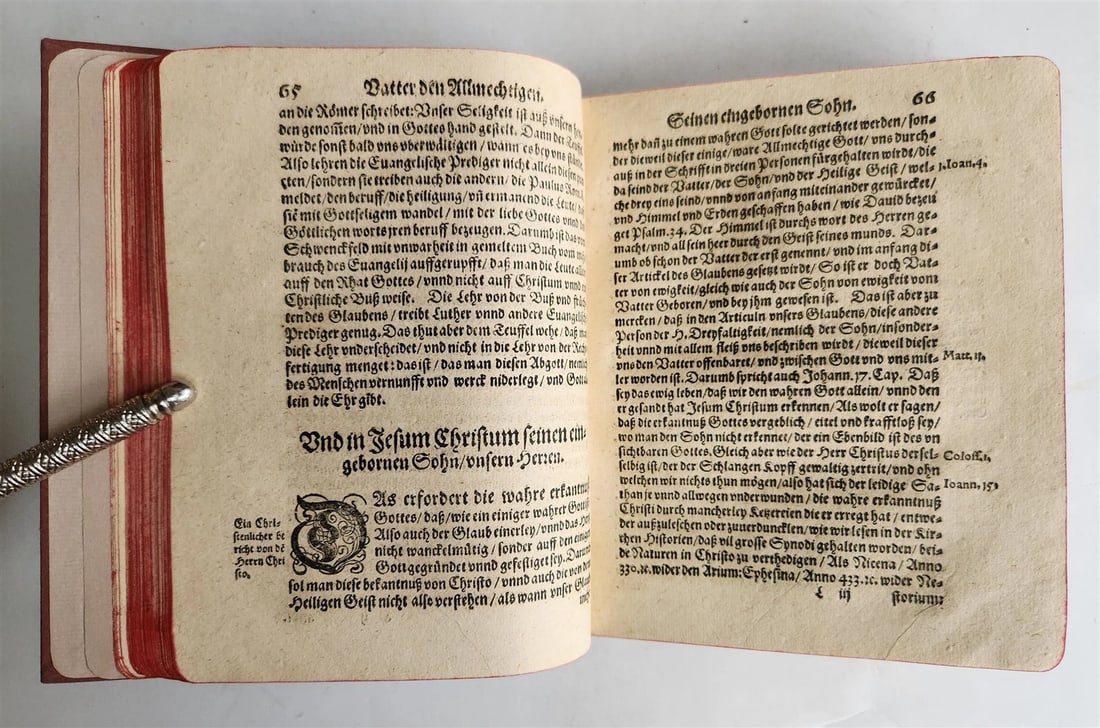 65 Vatter den Allmechtigen.
an die Römer schreibet: Vnser Seligkeit ist auß vnsern
den genom̃en/vnd in Gottes hand gestelt. Dann der Teuffel
würde sonst bald vns vberwältigen/wann es bey vns
Also lehren die Euangelische Prediger nicht allein diesen
cten/sondern sie treiben auch die andern/die Paulus Rom.
meldet/den beruff/die heiligung/vn̄ ermanend die Leute/
sie mit Gottseligem wandel/mit der liebe Gottes vnnd
Göttlichen worts jren beruff bezeugen. Darumb ist das
Schwenckfeld mit vnwarheit in gemeltem Buch vom
brauch des Euangelij auffgerupfft/daß man die Leute
auff den Rhat Gottes/vnnd nicht auff Christum vnnd
Christliche Buß weise. Die Lehr von der Buß vnd
ten des Glaubens/treibt Luther vnnd andere
Prediger genug. Das thut aber dem Teuffel wehe/daß
diese Lehr vnderscheidet/vnd nicht in die Lehr von der
fertigung menget: das ist/das man diesen Abgott/
des Menschen vernunfft vnd werck niderlegt/vnd
lein die Ehr gibt.
Vnd in Jesum Christum seinen ein-
gebornen Sohn/vnsern Herren.
Ein Chri-
stenlicher be
richt von dē
Herrn Chri
sto.
DAs erfordert die wahre erkantnuß
Gottes/daß/wie ein einiger wahrer Gott
Also auch der Glaub einerley/vnnd das
nicht wanckelmütig/sonder auff den einigen
Gott gegründet vnnd gefestiget sey. Darumb
sol man diese bekantnuß von Christo/vnnd auch die von dem
Heiligen Geist nicht also verstehen/als wann vnser
Seinen eingebornen Sohn. 66
mehr dañ zu einem wahren Gott solte gerichtet werden/son-
der dieweil dieser einige/ware Allmechtige Gott/vns durch-
auß in der Schrifft in dreien Personen fürgehalten wirdt/die
da seind der Vatter/der Sohn/vnd der Heilige Geist/wel- 1.Ioan.4.
che drey eins seind/vnnd von anfang miteinander gewürcket/
vnd Himmel vnd Erden geschaffen haben/wie Dauid bezeu
get Psalm.34. Der Himmel ist durchs wort des Herren ge-
macht/vnd all sein heer durch den Geist seines munds. Dar-
umb ob schon der Vatter der erst genennt/vnd im anfang di-
ser Artickel des Glaubens gesetzt wirdt/So ist er doch Vat-
ter von ewigkeit/gleich wie auch der Sohn von ewigkeit vom
Vatter Geboren/vnd bey jhm gewesen ist. Das ist aber zu
mercken/daß in den Articuln vnsers Glaubens/diese andere
Person der H. Dreyfaltigkeit/nemlich der Sohn/insonder-
heit vnnd mit allem fleiß vns beschriben wirdt/dieweil dieser
vns den Vatter offenbaret/vnd zwischen Gott vnd vns mit- Matt. 11.
ler worden ist. Darumb spricht auch Johann.17. Cap. Daß
sey das ewig leben/daß wir den wahren Gott allein/vnnd den
er gesandt hat Jesum Christum erkennen/Als wolt er sagen/
daß die erkantnuß Gottes vergeblich/eitel vnd krafftloß sey/
wo man den Sohn nicht erkennet/der ein Ebenbild ist des vn
sichtbaren Gottes. Gleich aber wie der Herr Christus dersel- Coloss.1.
selbig ist/der der Schlangen Kopff gewaltig zertrit/vnd ohn
welchen wir nichts thun mögen/also hat sich der leidige Sa- Ioann.15.
than je vnnd allwegen vnderwunden/die wahre erkantnuß
Christi durch mancherley Ketzereien die er erregt hat/entwe-
der außzuleschen oder zuuerduncklen/wie wir lesen in der Kir-
chen Historien/daß vil grosse Synodi gehalten worden/bei-
de Naturen in Christo zu verthedigen/Als Nicena/Anno
330.ꝛc. wider den Arium: Ephesina/Anno 433.ꝛc. wider Ne-
L iij storium: